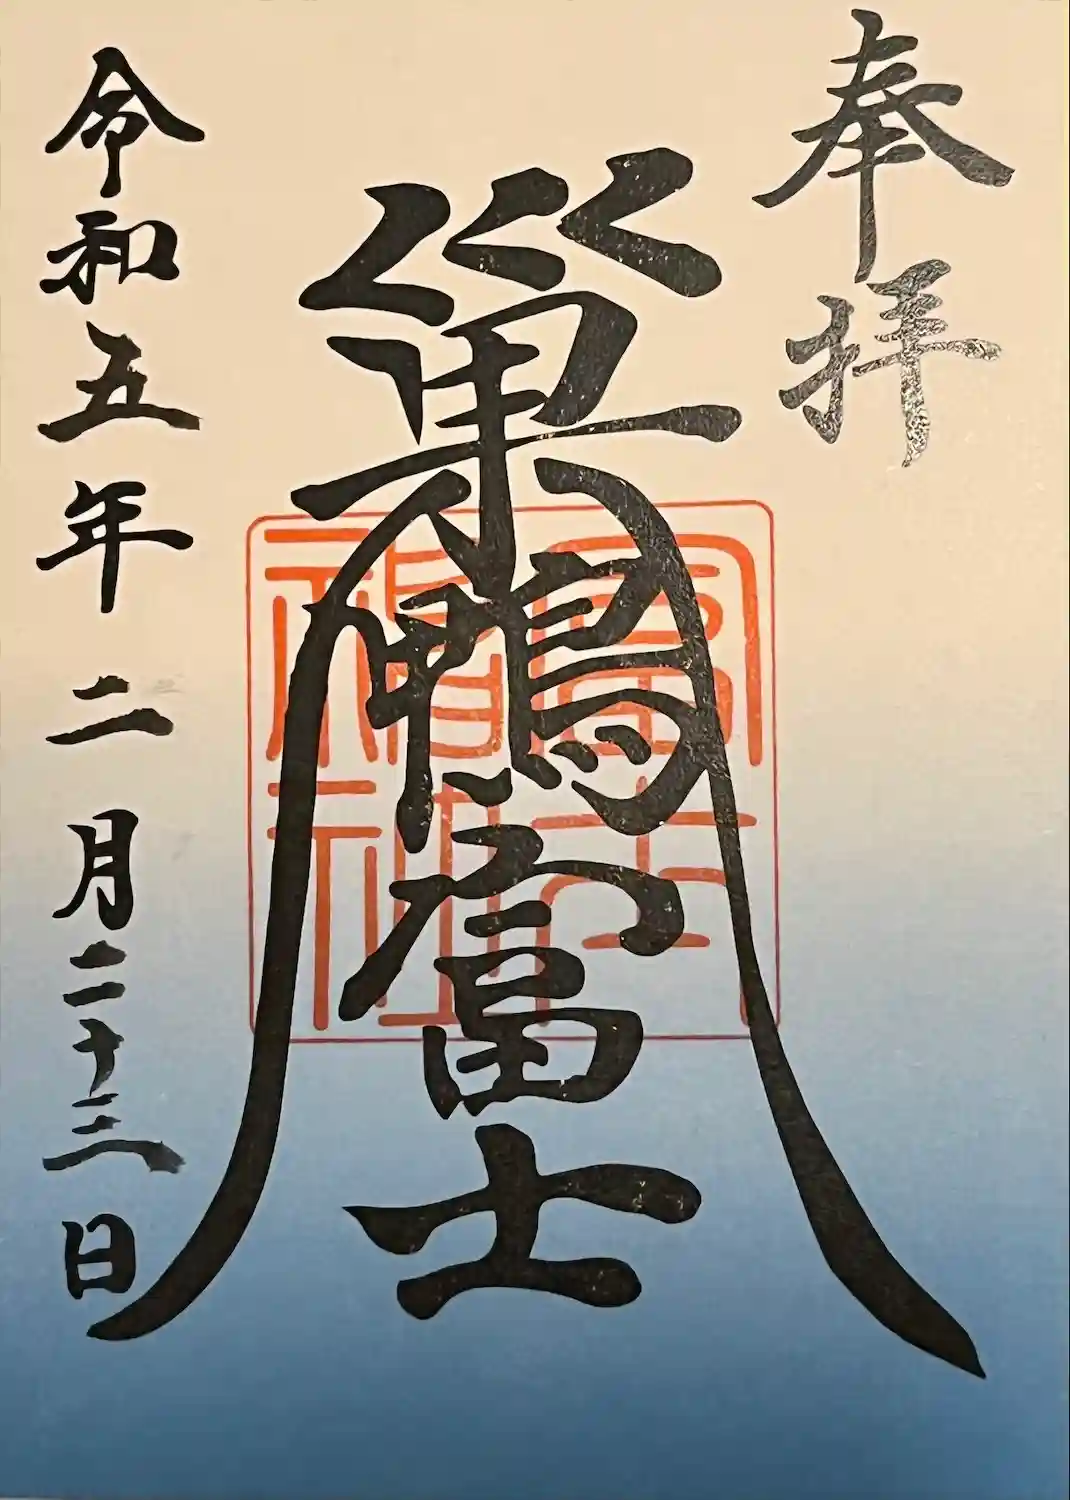 奉拝
巢鴨富士
富士
神社
令和五年二月二十三日